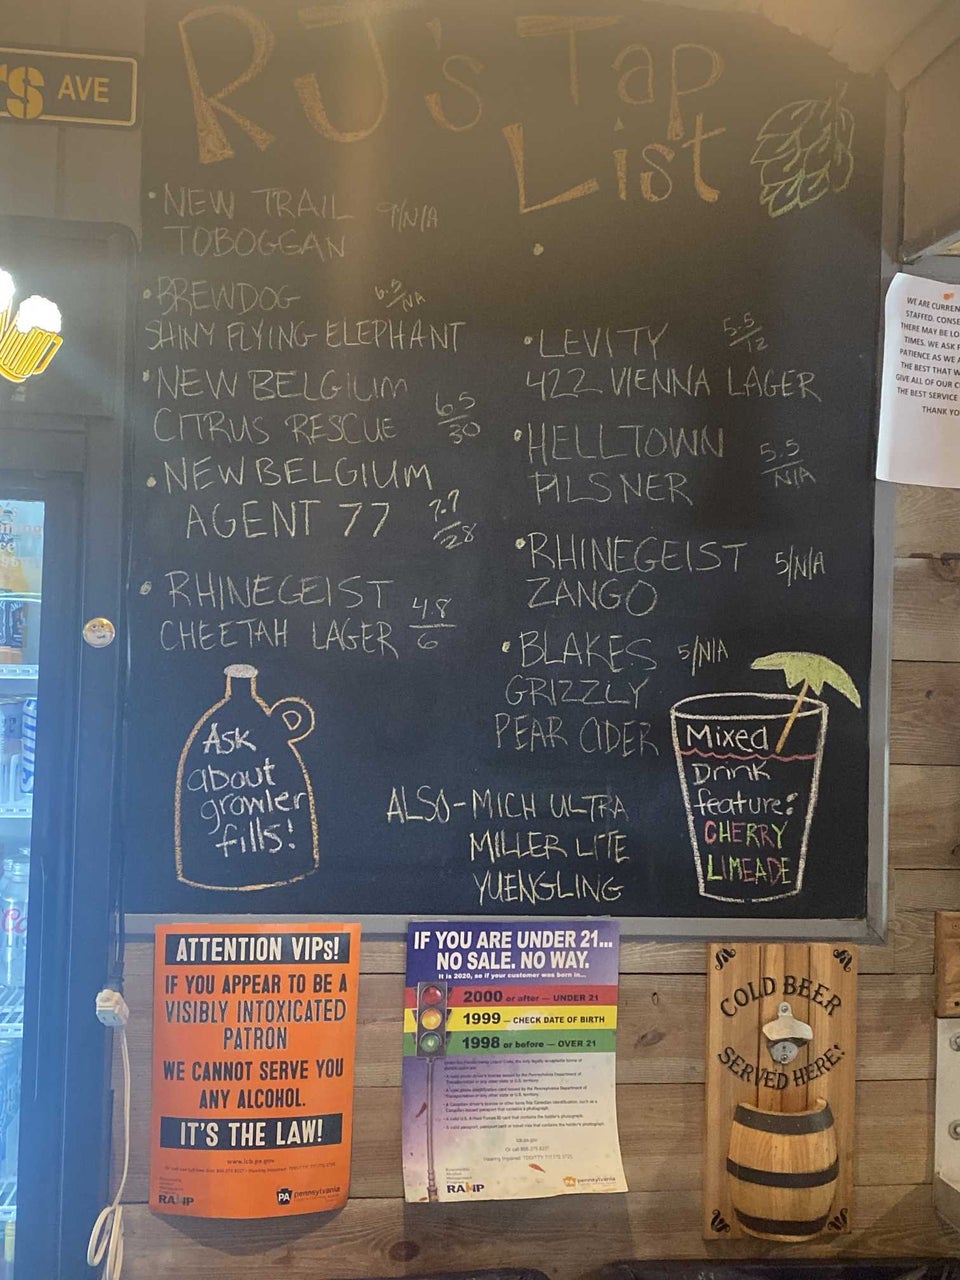 AVE
RJ's Tap
List
• NEW TRAIL 9/N/A
TOBOGGAN
• BREWDOG
SHINY FLYING ELEPHANT
• NEW BELGIUM
CITRUS RESCUE 6.5/30
• NEW BELGIUM
AGENT 77
• RHINEGEIST
CHEETAH LAGER 4.8/6
• LEVITY 5.5/12
422 VIENNA LAGER
• HELLTOWN
PILSNER 5.5/N/A
• RHINEGEIST 5/N/A
ZANGO
• BLAKES 5/N/A
GRIZZLY
PEAR CIDER
ALSO- MICH ULTRA
MILLER LITE
YUENGLING
Ask
about
growler
fills!
Mixed
Drink
feature:
CHERRY
LIMEADE
WE ARE CURREN
STAFFED. CONSE
THERE MAY BE LO
TIMES. WE ASK
PATIENCE AS WE
THE BEST THAT W
GIVE ALL OF OUR C
THE BEST SERVICE
THANK YO
ATTENTION VIPs!
IF YOU APPEAR TO BE A
VISIBLY INTOXICATED
PATRON
WE CANNOT SERVE YOU
ANY ALCOHOL.
IT'S THE LAW!
www.lcb.pa.gov
RAMP
PA pennsylvania
IF YOU ARE UNDER 21...
NO SALE. NO WAY.
It is 2020, so if your customer was born in...
2000 or after — UNDER 21
1999 — CHECK DATE OF BIRTH
1998 or before — OVER 21
lcb.pa.gov
RAMP
pennsylvania
COLD BEER
SERVED HERE!